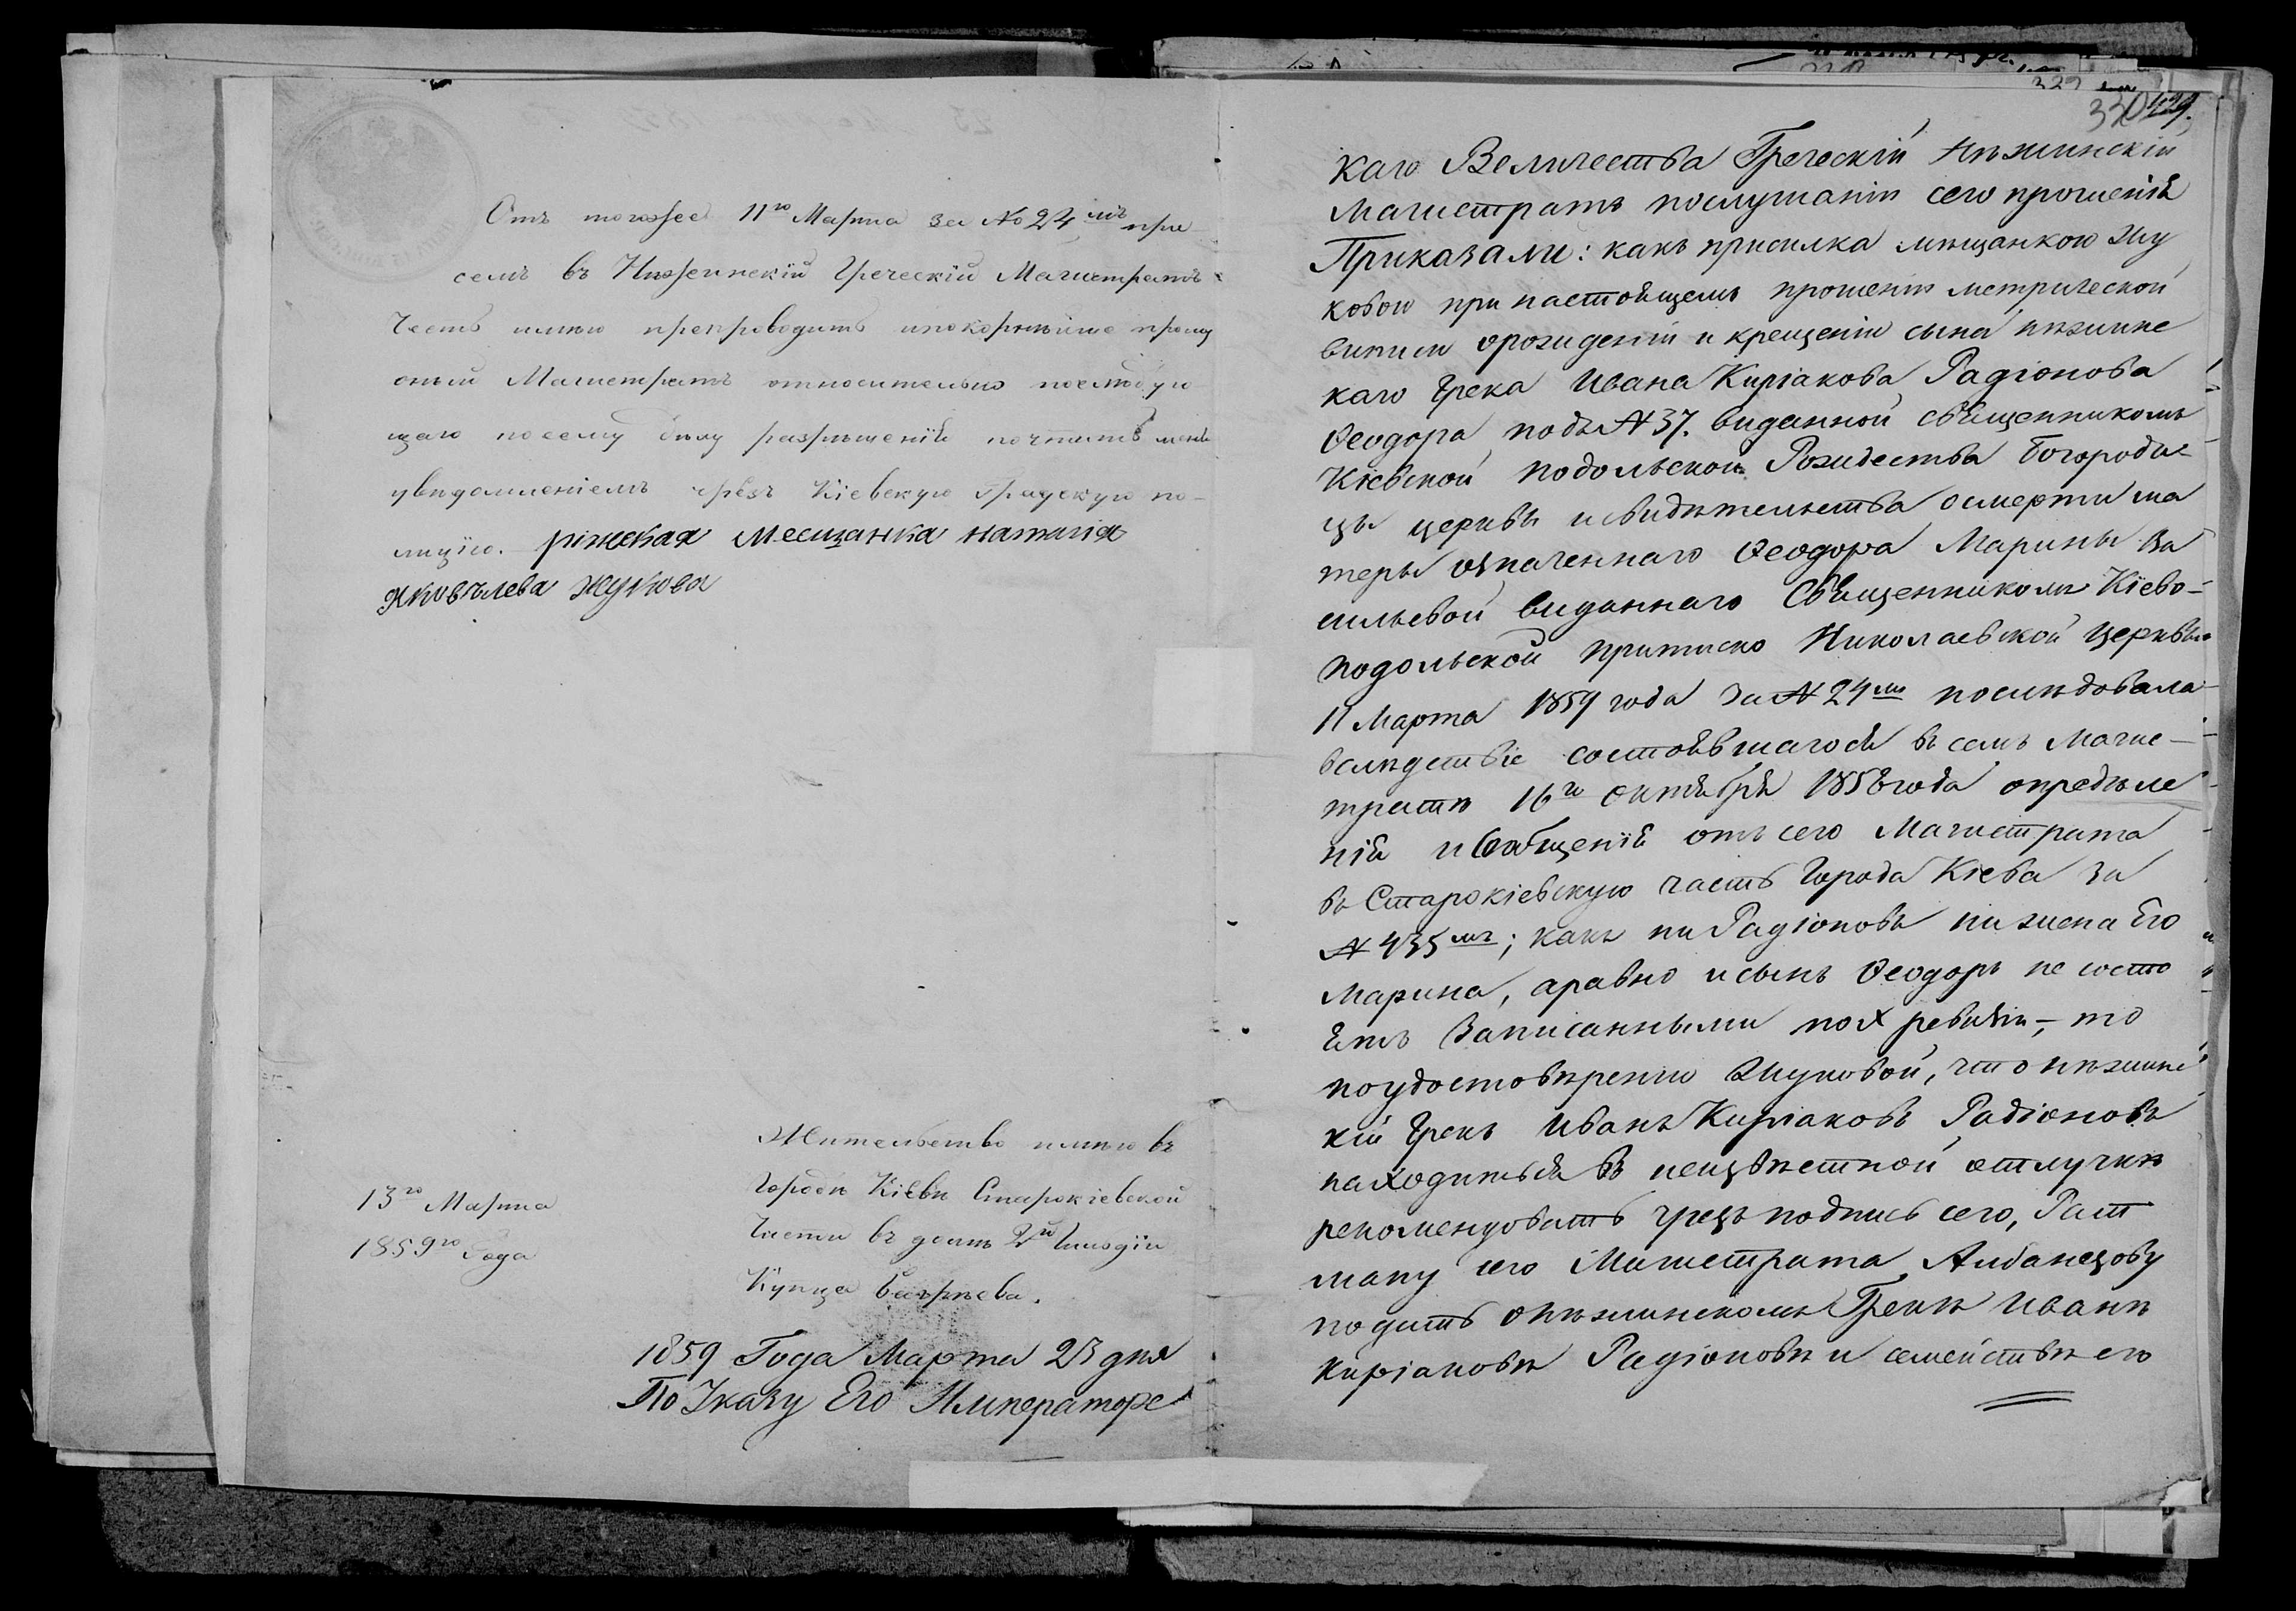 Отъ тогоже 11го Марта за No 24мъ при
семъ въ Нѣжинскій Греческій Магистратъ
Честь имѣю препроводить ипокорнѣйше прошу
оный Магистратъ относительно послѣдую
щаго посему дѣлу разрѣшенія почтить меня
увѣдомленіемъ чрезъ Кіевскую Градскую по-
лицію. ріжская Месщанка наталія
Яковълева жукова
Жительство имѣю въ
Городѣ Кіевѣ Старокіевской
Части въ домѣ 2й Гильдіи
Купца
13го Марта
1859го Года
1859 Года Марта 23 дня
По Указу Его Императорс
330
каго Величества Греческій Нѣжинскій
Магистратъ послушаніи сего прошенія
Приказали: какъ присилка мѣщанкою Жу
ковою при настоящемъ прошеніи метрической
виписи орожденіи и крещеніи сына нѣжинс
каго Грека Ивана Киріакова Радіонова
Ѳеодора подъ N 37. виданной священникомъ
Кіевской подольской Рождества Богороди-
цы церкви исвидѣтельства осмерти ма
тери означеннаго Ѳеодора Марины Ва
сильевой виданнаго Священникомъ Кіево-
подольской притиско Николаевской Церкви
11 Марта 1859 года за N 24мъ послѣдовала
вслѣдствіе состоявшагося въ семъ Магис-
тратѣ 16го октября 1858 года опредѣле
нія исообщенія отъ сего Магистрата
въ Старокіевскую часть Города Кіева за
N 435мъ; какъ ни Радіоновъ ни жена Его
Марина, аравно исынъ Ѳеодоръ не состо
ятъ Записанными поX ревизіи, – то
поудостовѣренію Жуковой, что нѣжинс
кій Грекъ Иванъ Киріаковъ Радіоновъ
находиться въ неизвѣстной отлучкѣ
рекомендовать чрезъ подпись сего, Рат
ману сего Магистрата Албанезову
подать онѣжинскомъ Грекѣ Иванѣ
Киріаковѣ Радіоновѣ и семействѣ его